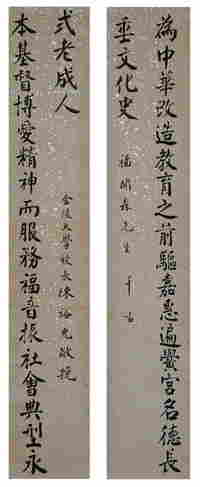 為中華改造教育之前驅嘉惠遍黌宮名德長
垂文化史
福開森先生千古
本基督博愛精神而服務福音振社會典型永
式老成人
金陵大學校長陳裕光敬挽